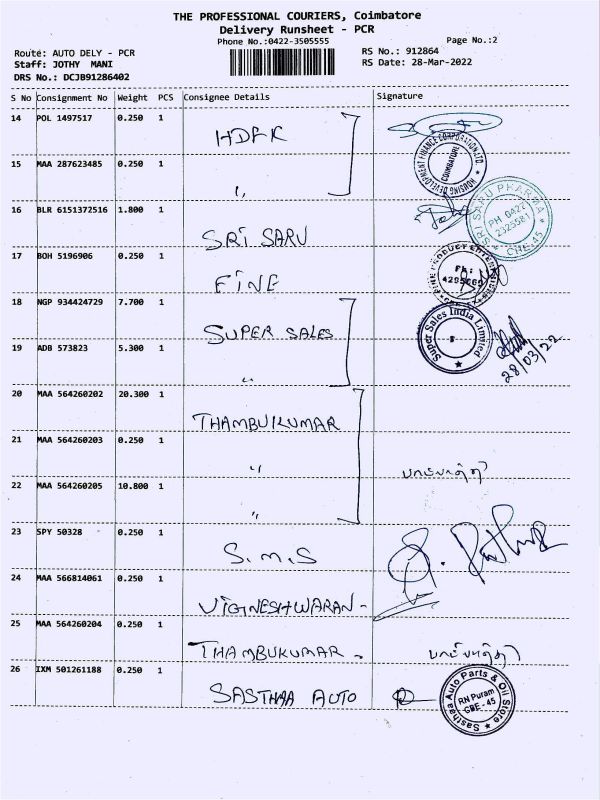 THE PROFESSIONAL COURIERS, Coimbatore
Delivery Runsheet - PCR
Phone No.:0422-3505555
Page No.:2
Route: AUTO DELY - PCR
RS No.: 912864
Staff: JOTHY MANI
RS Date: 28-Mar-2022
DRS No.: DCJB91286402
S No Consignment No Weight PCS Consignee Details Signature
14 POL 1497517 0.250 1 HDFK
HOUSING DEVELOPMENT FINANCE CORPORATION LTD.
COIMBATORE
15 MAA 287623485 0.250 1 "
16 BLR 6151372516 1.800 1 SRI SARU
SRI SARU PHARMA
PH 0422
2325581
CBE-45
17 BOH 5196906 0.250 1 FINE
FINE PRODUCT ENTERPRISES
18 NGP 934424729 7.700 1 SUPER SALES
Super Sales India Limited
19 ADB 573823 5.300 1 "
28/03/22
20 MAA 564260202 20.300 1 THAMBUKUMAR
21 MAA 564260203 0.250 1 "
22 MAA 564260205 10.800 1 "
23 SPY 50328 0.250 1 S.M.S
24 MAA 566814061 0.250 1 VIGINESHWARAN -
25 MAA 564260204 0.250 1 THAMBUKUMAR -
26 IXM 501261188 0.250 1 SASTHAA AUTO
Sasthaa Auto Parts & Oil Store
RN Puram
CBE-45